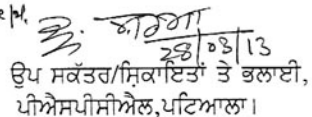 28/03/13
ਉਪ ਸਕੱਤਰ/ਸ਼ਿਕਾਇਤਾਂ ਤੇ ਭਲਾਈ,
ਪੀਐਸਪੀਸੀਐਲ,ਪਟਿਆਲਾ।